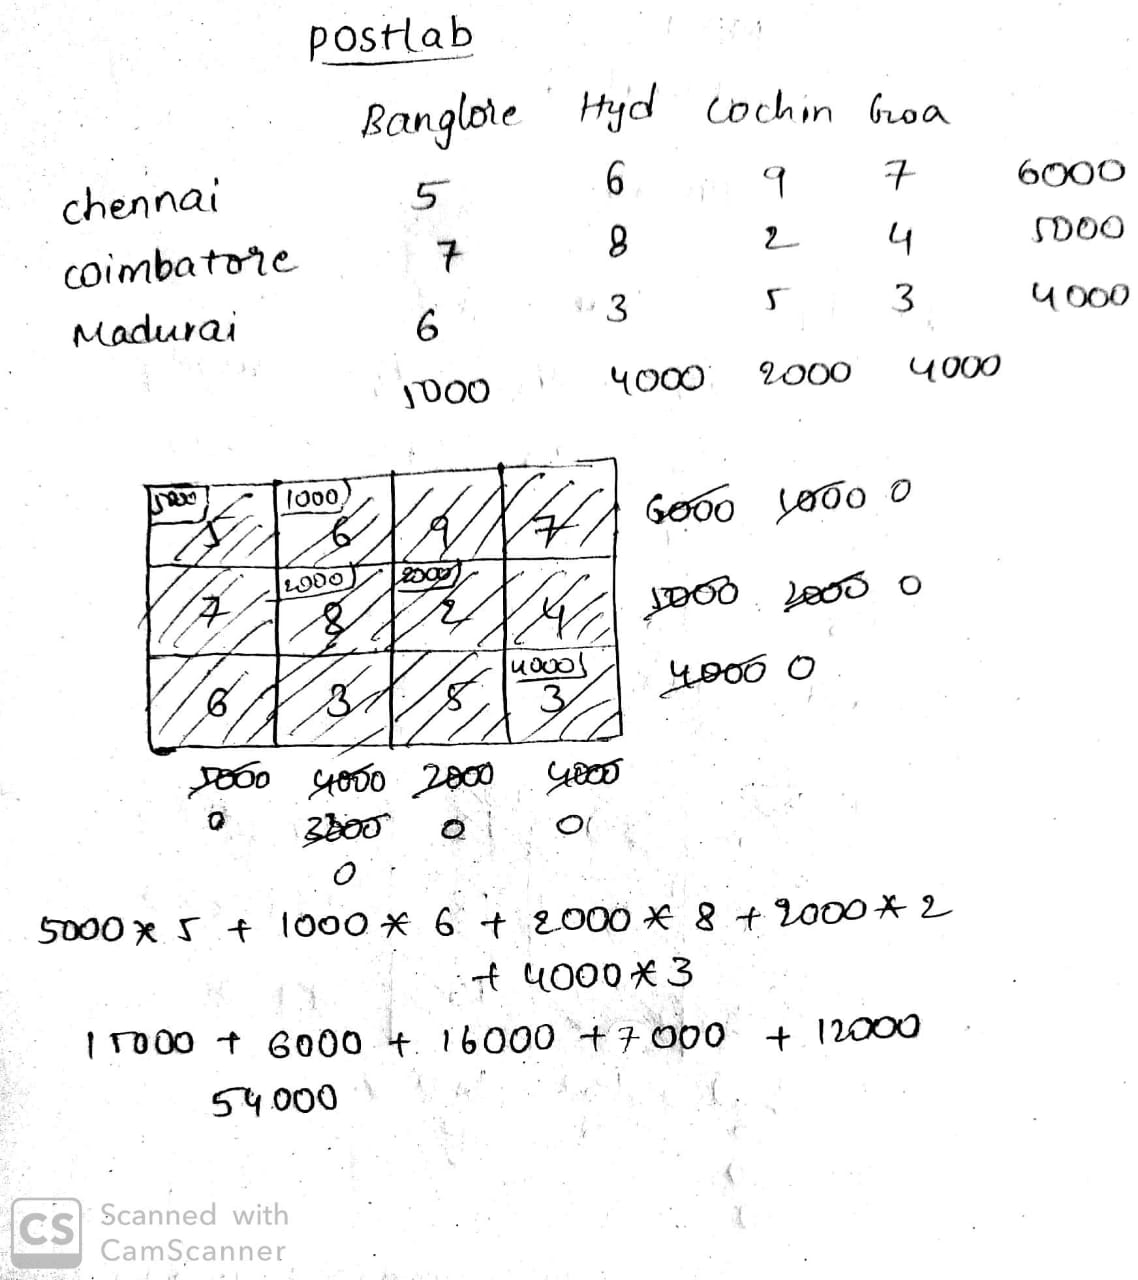 postlab
Banglore Hyd cochin Goa
chennai 5 6 9 7 6000
coimbatore 7 8 2 4 5000
Madurai 6 3 5 3 4000
5000 4000 2000 4000
5000 1000
5 6 9 7 6000 1000 0
2000 2000
7 8 2 4 5000 2000 0
4000
6 3 5 3 4000 0
5000 4000 2000 4000
0 3000 0 0
0
5000 * 5 + 1000 * 6 + 2000 * 8 + 2000 * 2
+ 4000 * 3
15000 + 6000 + 16000 + 7000 + 12000
54000
CS Scanned with
CamScanner